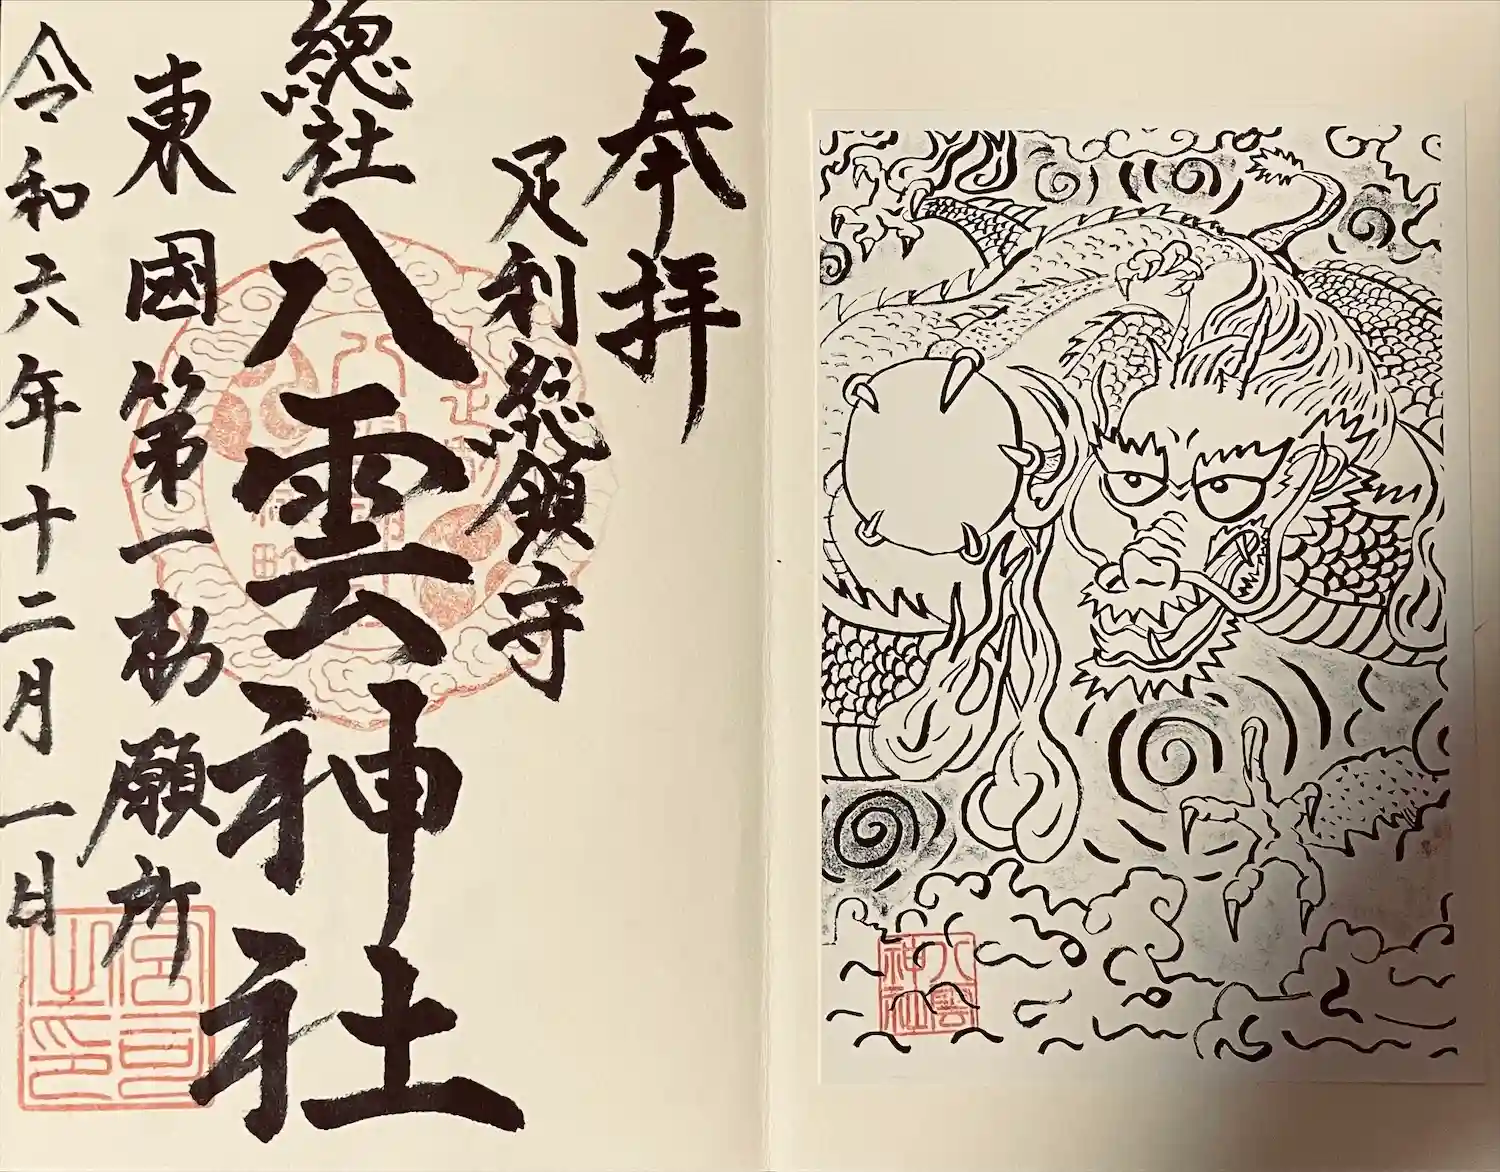 奉拝
足利総鎮守
總社
八雲神社
東國第一勅願所
令和六年十二月一日
宮司之印
八雲神社